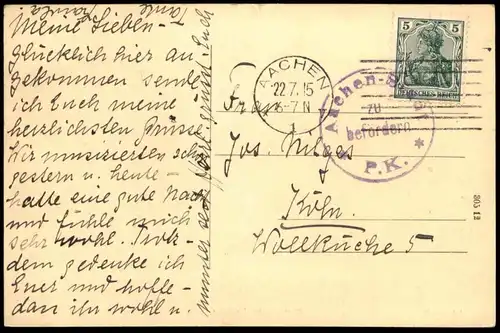 Meine Lieben-
Glücklich hier an-
gekommen sende
ich Euch meine
herzlichsten Grüsse
Wir musizierten schon
gestern u. heute-
hatte eine gute Nacht
und fühle mich
sehr wohl. Trotz-
dem gedenke ich
Euer und hoffe-
dass ihr wohl u.
munter seid
Euch
Tante
AACHEN
22.7.15
6-7 N
5 5
DEUTSCHES REICH
Aachen
zu
befördern
P.K.
Frau
Jos. Milges
Köln
Wollküche 5